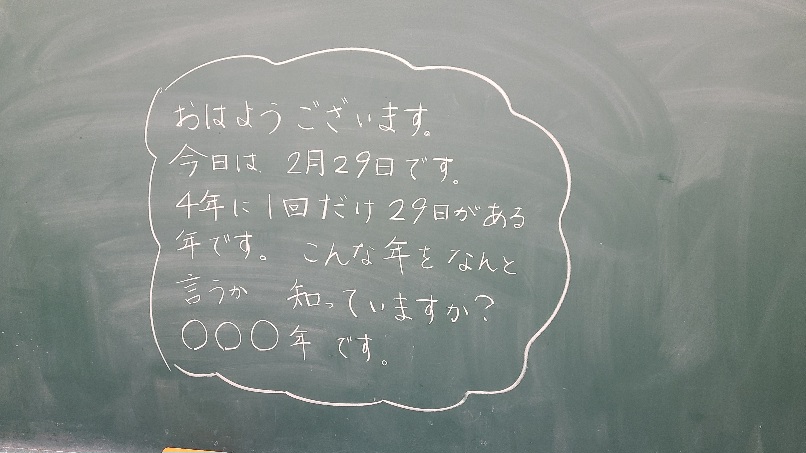 おはようございます。
今日は 2月29日です。
4年に1回だけ29日がある
年です。 こんな年をなんと
言うか 知っていますか？
○○○年です。